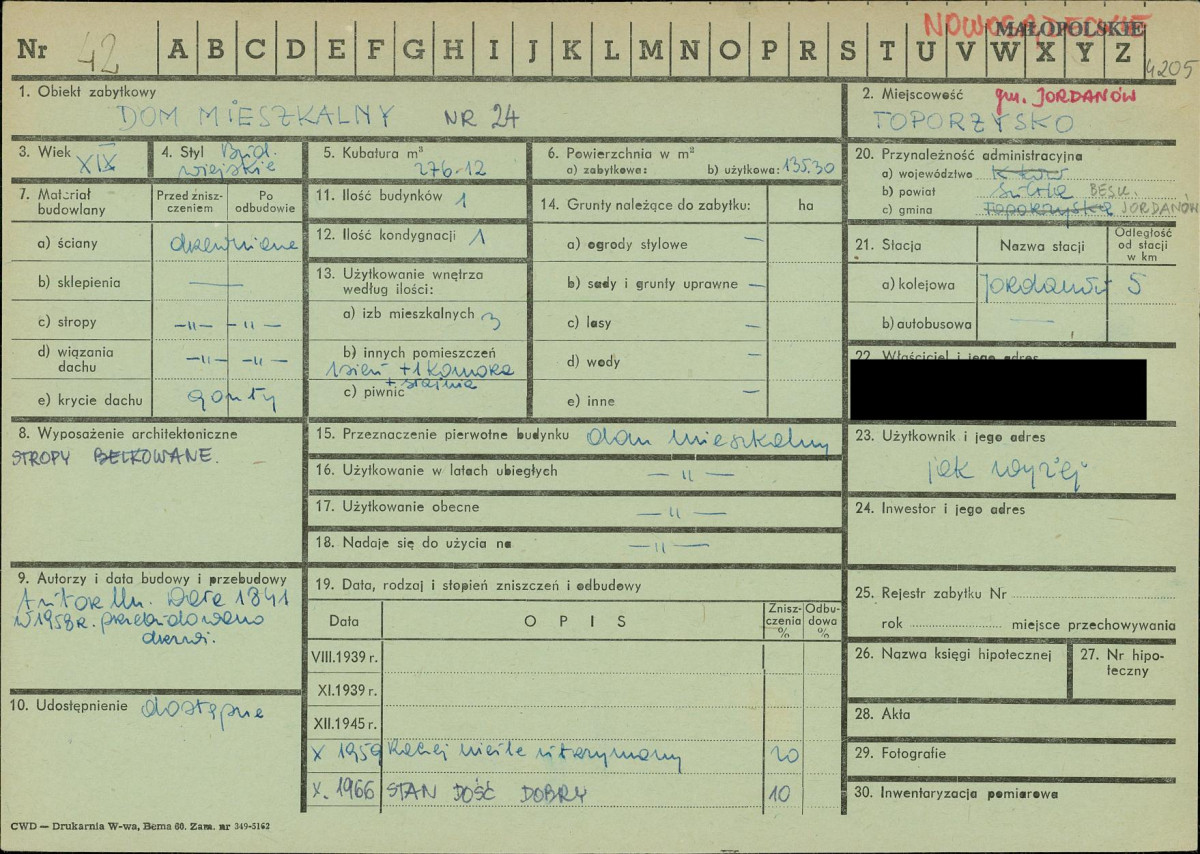 NOWOSĄDECKIE
MAŁOPOLSKIE
Nr 42 A B C D E F G H I J K L M N O P R S T U V W X Y Z 4205
1. Obiekt zabytkowy
DOM MIESZKALNY NR 24
2. Miejscowość gm. JORDANÓW
TOPORZYSKO
3. Wiek
XIX
4. Styl Bud.
wiejskie
5. Kubatura m³
276.12
6. Powierzchnia w m²
a) zabytkowa: b) użytkowa: 135.30
20. Przynależność administracyjna
a) województwo
b) powiat Sucha BESK.
c) gmina Toporzysko JORDANÓW
7. Materiał budowlany
Przed zniszczeniem
Po odbudowie
a) ściany drewniane
b) sklepienia —
c) stropy —„— —„—
d) wiązania dachu —„— —„—
e) krycie dachu gonty
11. Ilość budynków 1
12. Ilość kondygnacji 1
13. Użytkowanie wnętrza
według ilości:
a) izb mieszkalnych 3
b) innych pomieszczeń
1 sień + 1 komora
+ stajnia
c) piwnic
14. Grunty należące do zabytku: ha
a) ogrody stylowe —
b) sady i grunty uprawne —
c) lasy —
d) wody —
e) inne —
21. Stacja
Nazwa stacji
Odległość
od stacji
w km
a) kolejowa Jordanów 5
b) autobusowa —
22. Właściciel i jego adres
8. Wyposażenie architektoniczne
STROPY BELKOWANE.
15. Przeznaczenie pierwotne budynku dom mieszkalny
16. Użytkowanie w latach ubiegłych —„—
17. Użytkowanie obecne —„—
18. Nadaje się do użycia na —„—
23. Użytkownik i jego adres
jak wyżej
24. Inwestor i jego adres
9. Autorzy i data budowy i przebudowy
Autor nn. Data 1841
w 1958 r. przebudowano
drzwi.
19. Data, rodzaj i stopień zniszczeń i odbudowy
Data O P I S Zniszczenia % Odbudowa %
VIII.1939 r.
XI.1939 r.
XII.1945 r.
X 1959 Raczej nieźle utrzymany 20
X. 1966 STAN DOŚĆ DOBRY 10
25. Rejestr zabytku Nr
rok miejsce przechowywania
26. Nazwa księgi hipotecznej
27. Nr hipoteczny
10. Udostępnienie dostępne
28. Akta
29. Fotografie
30. Inwentaryzacja pomiarowa
CWD — Drukarnia W-wa, Bema 60. Zam. nr 349-5162